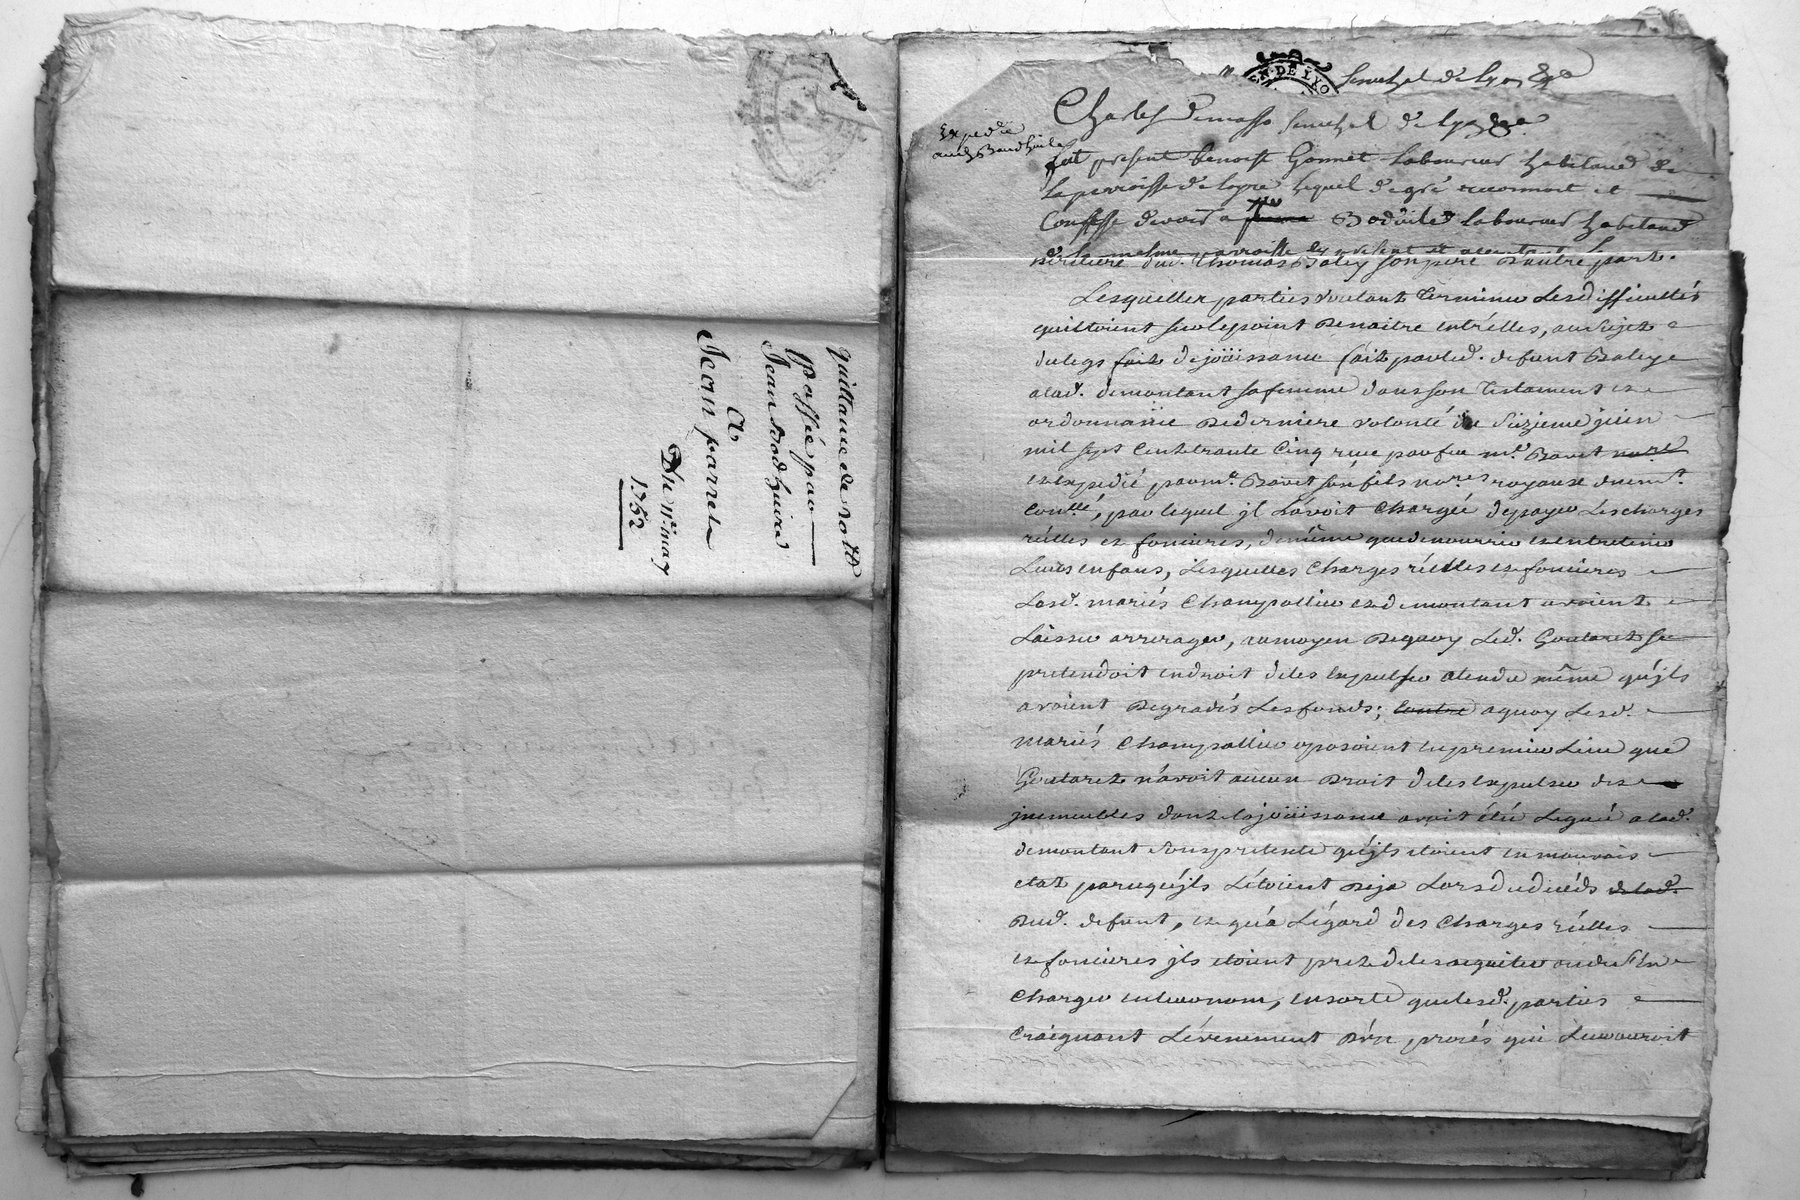 quittance de 20 ₶
passée par
Jean bodhuire
A
Jean parret
Du 11e. may
1752
EN·DE·LYO
Senechal de Lyon
Charles Demasso Senechal de Lyon
Expedié
fut present benoist Gonnet Laboureur habitant de
la parroisse de Loyre lequel de gré reconnoit et
Confesse devoir a Laboureur habitant
de la mesme parroisse cy present et acceptant
heritiere dud. Thomas Baley son pere D'autre part.
Lesquelles parties voulant terminer Les difficultés
qui étoient sur le point De naitre entr'elles, au Sujet
du legs fait de joüissance fait par led. defunt Baleye
a lad. demontant sa femme dans son testament et
ordonnance De derniere volonté du Sizieme juin
mil sept Cent trente Cinq reçue par feu me. Bavet
et expedié par me. Bavet son fils nore. royaux
, par lequel jl L'avoit Chargée de payer Les charges
réelles et foncieres, de même que de nourrir et entretenir
Leurs enfans, Lesquelles Charges réelles et foncieres
Lesd. mariés Champallier et demontant avoient
Laissé arrerager, au moyen De quoy Led. Goutaret Se
pretendoit en droit de les expulser atendu même qu'jls
avoient Degradés Les fonds; contre a quoy Lesd.
mariés Champallier oposoient en premier Lieu que
Goutaret n'avoit aucun Droit de les expulser des
jmmeubles dont la joüissance avoit été Leguée a lad.
demontant sous pretexte qu'jls etoient en mauvais
etat parcequ'jls L'étoient Deja Lors du decés de lad.
Dud. defunt, et qu'a L'égard des Charges réelles
et foncieres jls etoient prets de les acquiter ou de s'en
Charger en leur nom, en sorte que lesd. parties
Craignant L'évenement D'un procés qui Leur auroit